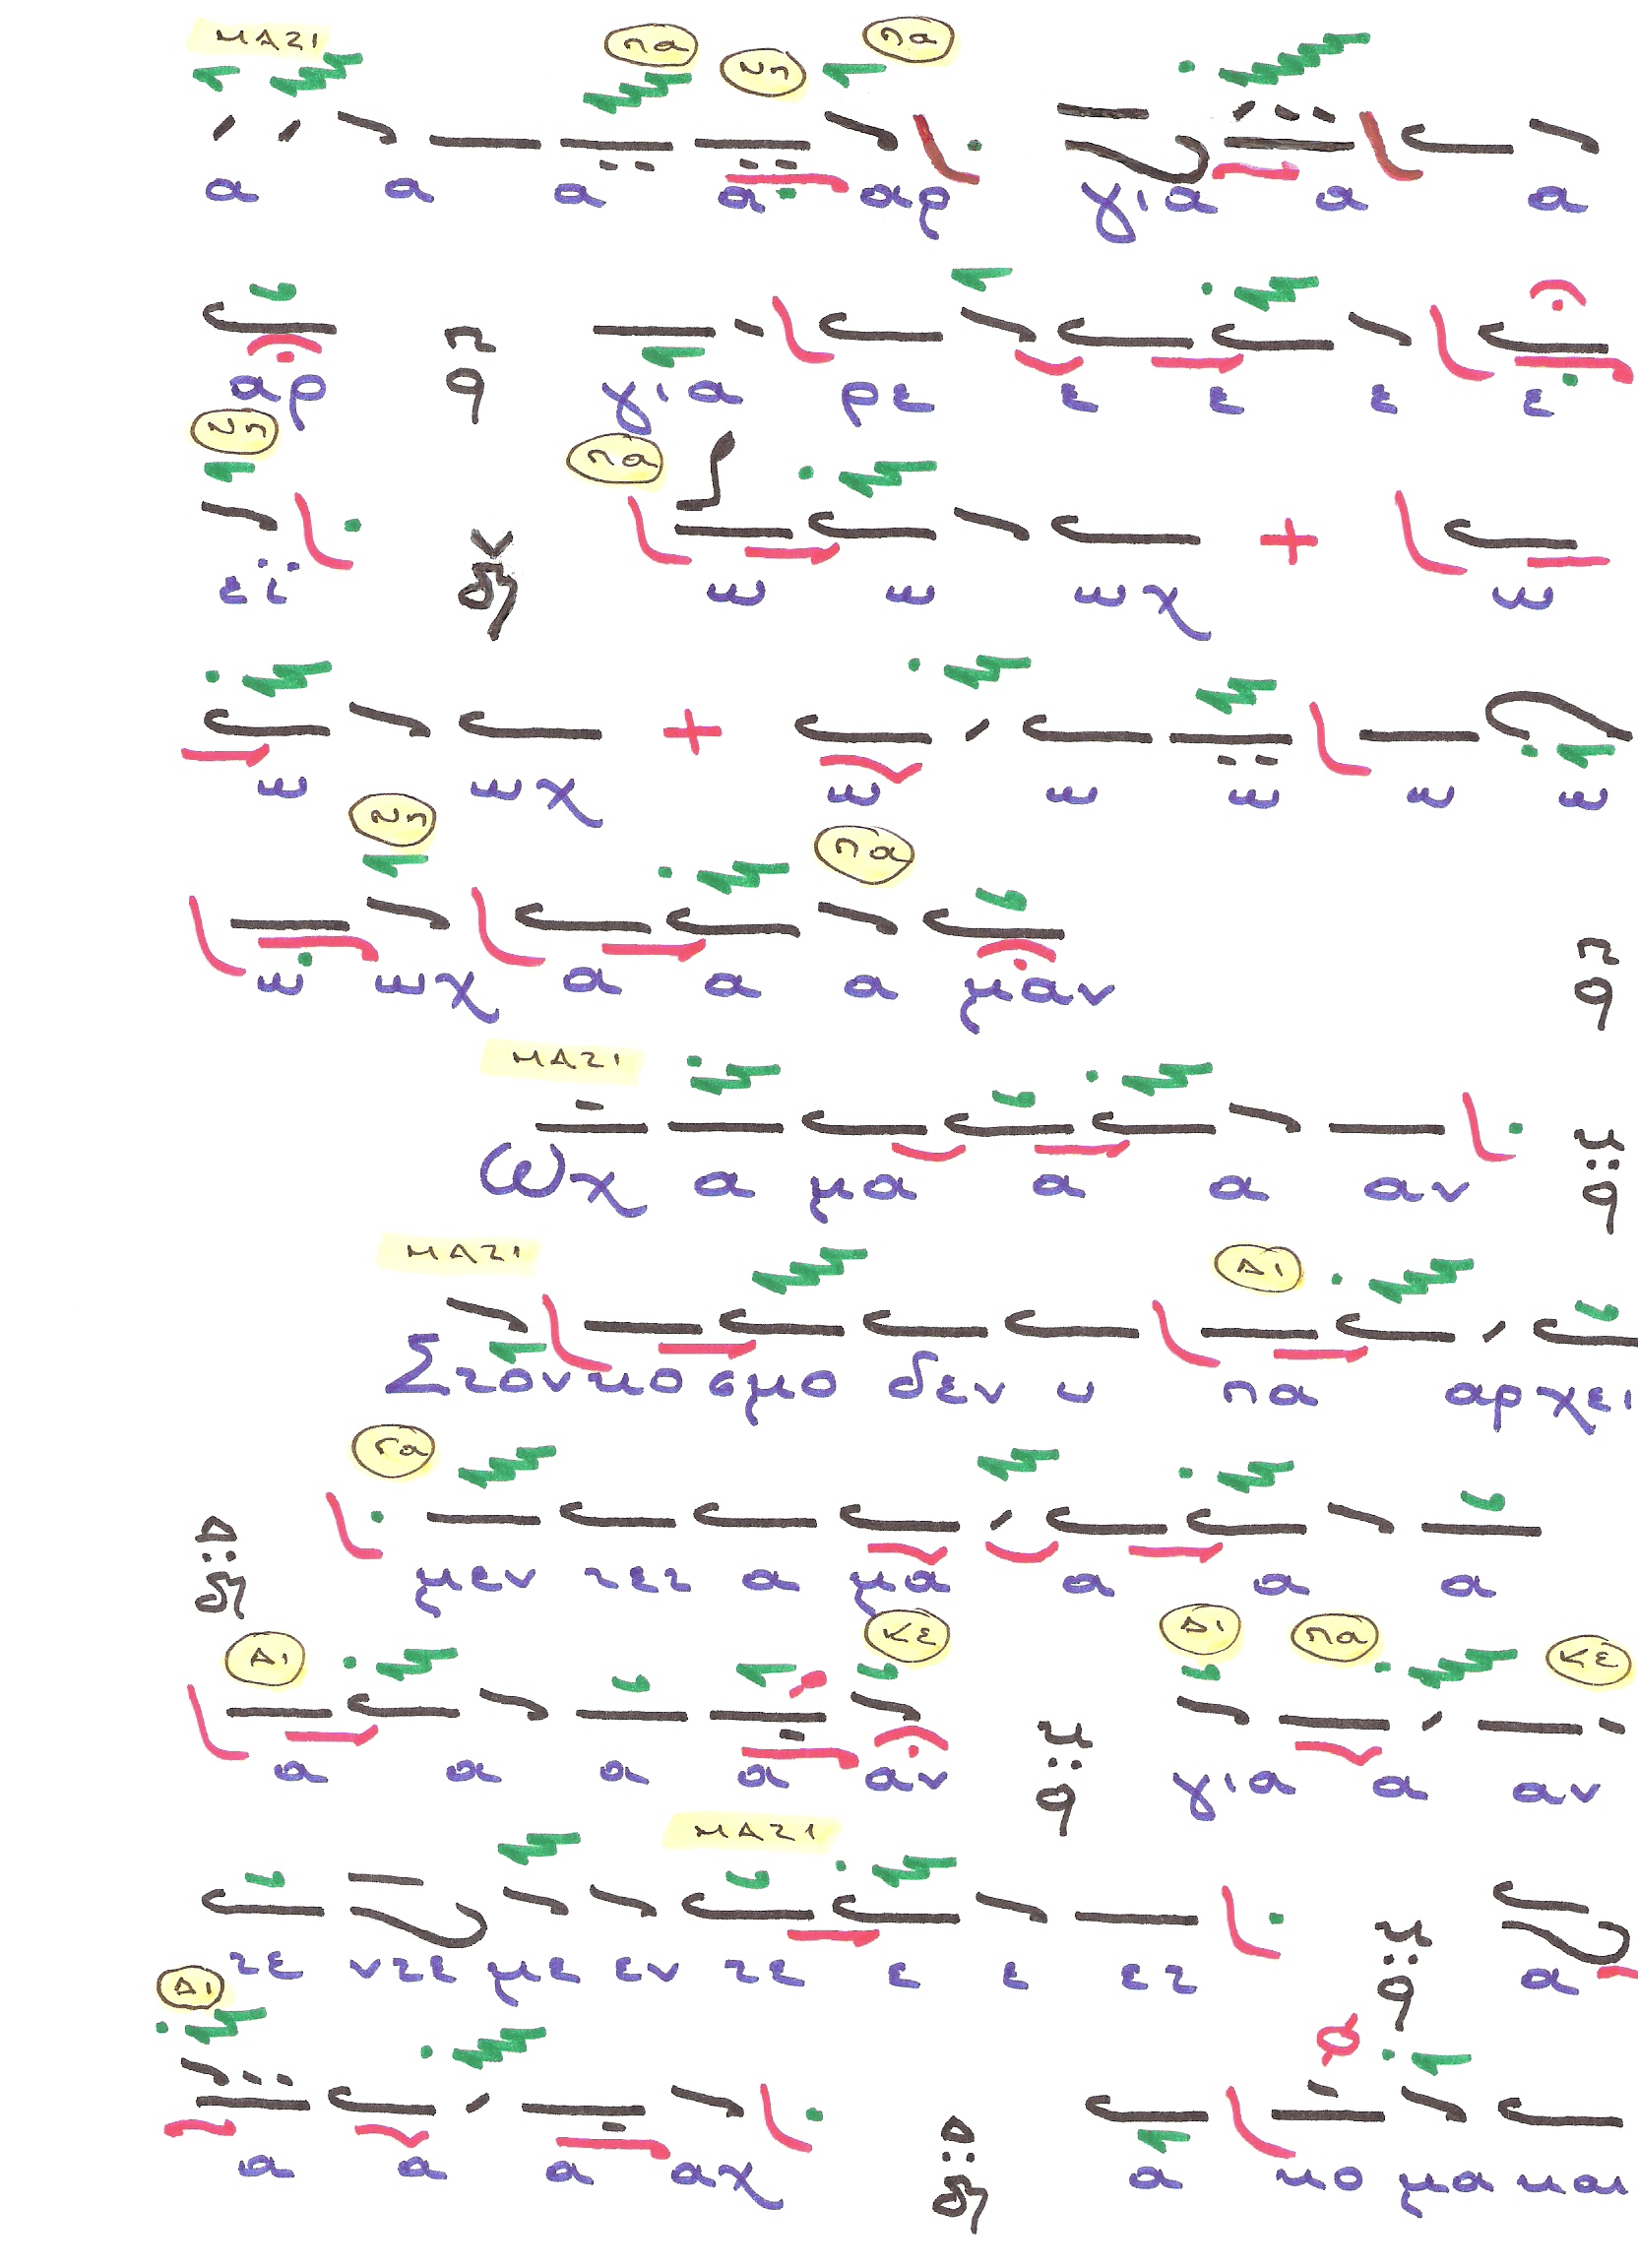 ΜΑΖΙ πα Νη πα
α α α α αρ για α α
αρ π q για ρε ε ε ε ε
Νη πα
εϊ δι ω ω ωχ + ω
ω ωχ + ω ω ω ω ω
Νη πα
ω ωχ α α α μαν π q
ΜΑΖΙ
Ωχ α μα α α αν κ q
ΜΑΖΙ Δι
Στον κο σμο δεν υ πα αρ χει
Γα
Δ δι μεν τετ α μα α α α
Δι Κε Δι πα Κε
α α α α αν κ q για α αν
ΜΑΖΙ
τε ντε με εν τε ε ε ετ κ q α
Δι
α α α αχ Δ δι α κο μα και